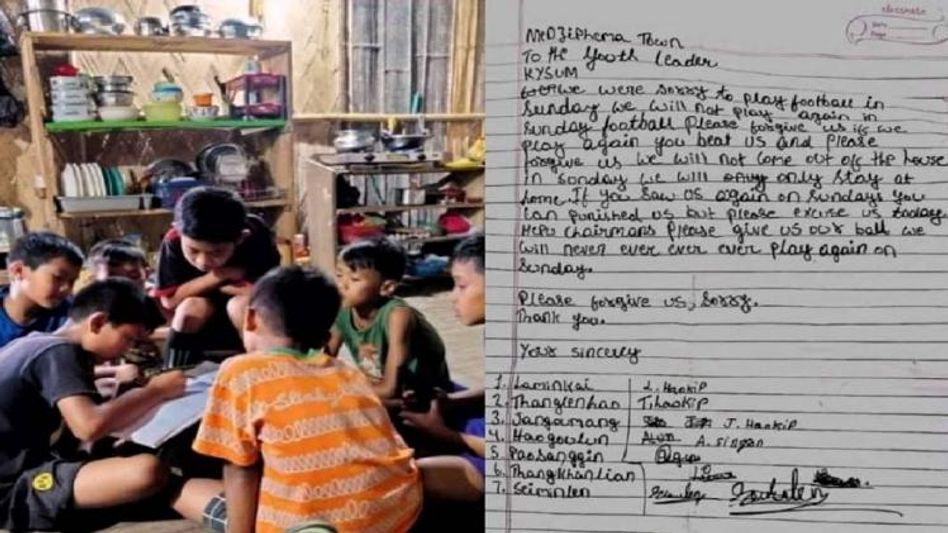 classmate
Date
Page
Medziphema Town
To the Youth Leader
KYSUM
we were sorry to play football in
Sunday we will not play again in
Sunday football Please forgive us if we
play again you beat us and please
forgive us we will not come out off the house
in sunday we will only only stay at
home. If you saw us again on sundays you
can punished us but please excuse us today
chairmans please give us our ball we
will never ever ever ever play again on
Sunday.
Please forgive us, Sorry.
Thank you.
Your sincerly
1. Laminkai L. Haokip
2. Thanglenhao T. haokip
3. Jangamang J. Haokip
4. Haogoulun A. singson
5 Paosanggin
6. Thangkhanlian
7. Seiminlen